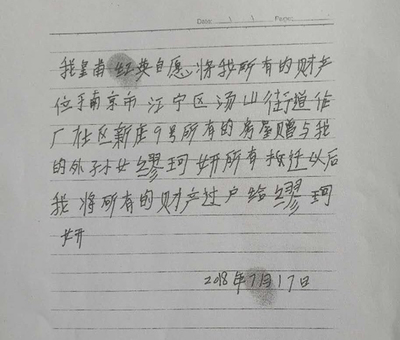 Date: / / Page:
我皇甫经英自愿,将我所有的财产
位于南京市江宁区汤山街道作
厂社区新庄9号所有的房屋赠与我
的外孙女缪珂妍所有拆迁以后
我将所有的财产过户给缪珂
妍
2018年7月17日